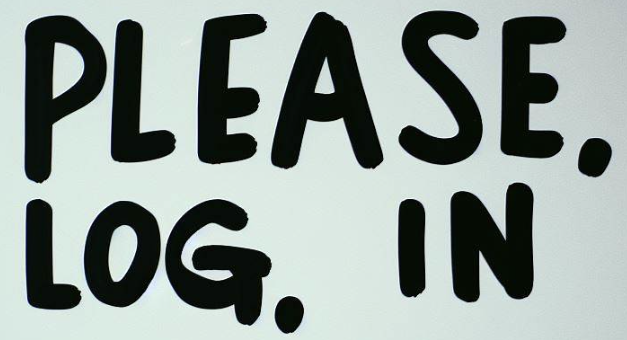 PLEASE.
LOG. IN